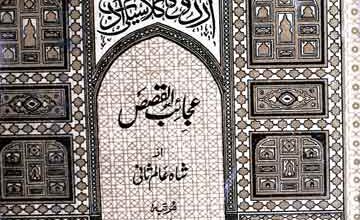 اردو کا کلاسیکی ادب
عجائب القصص
از
شاہ عالم ثانی